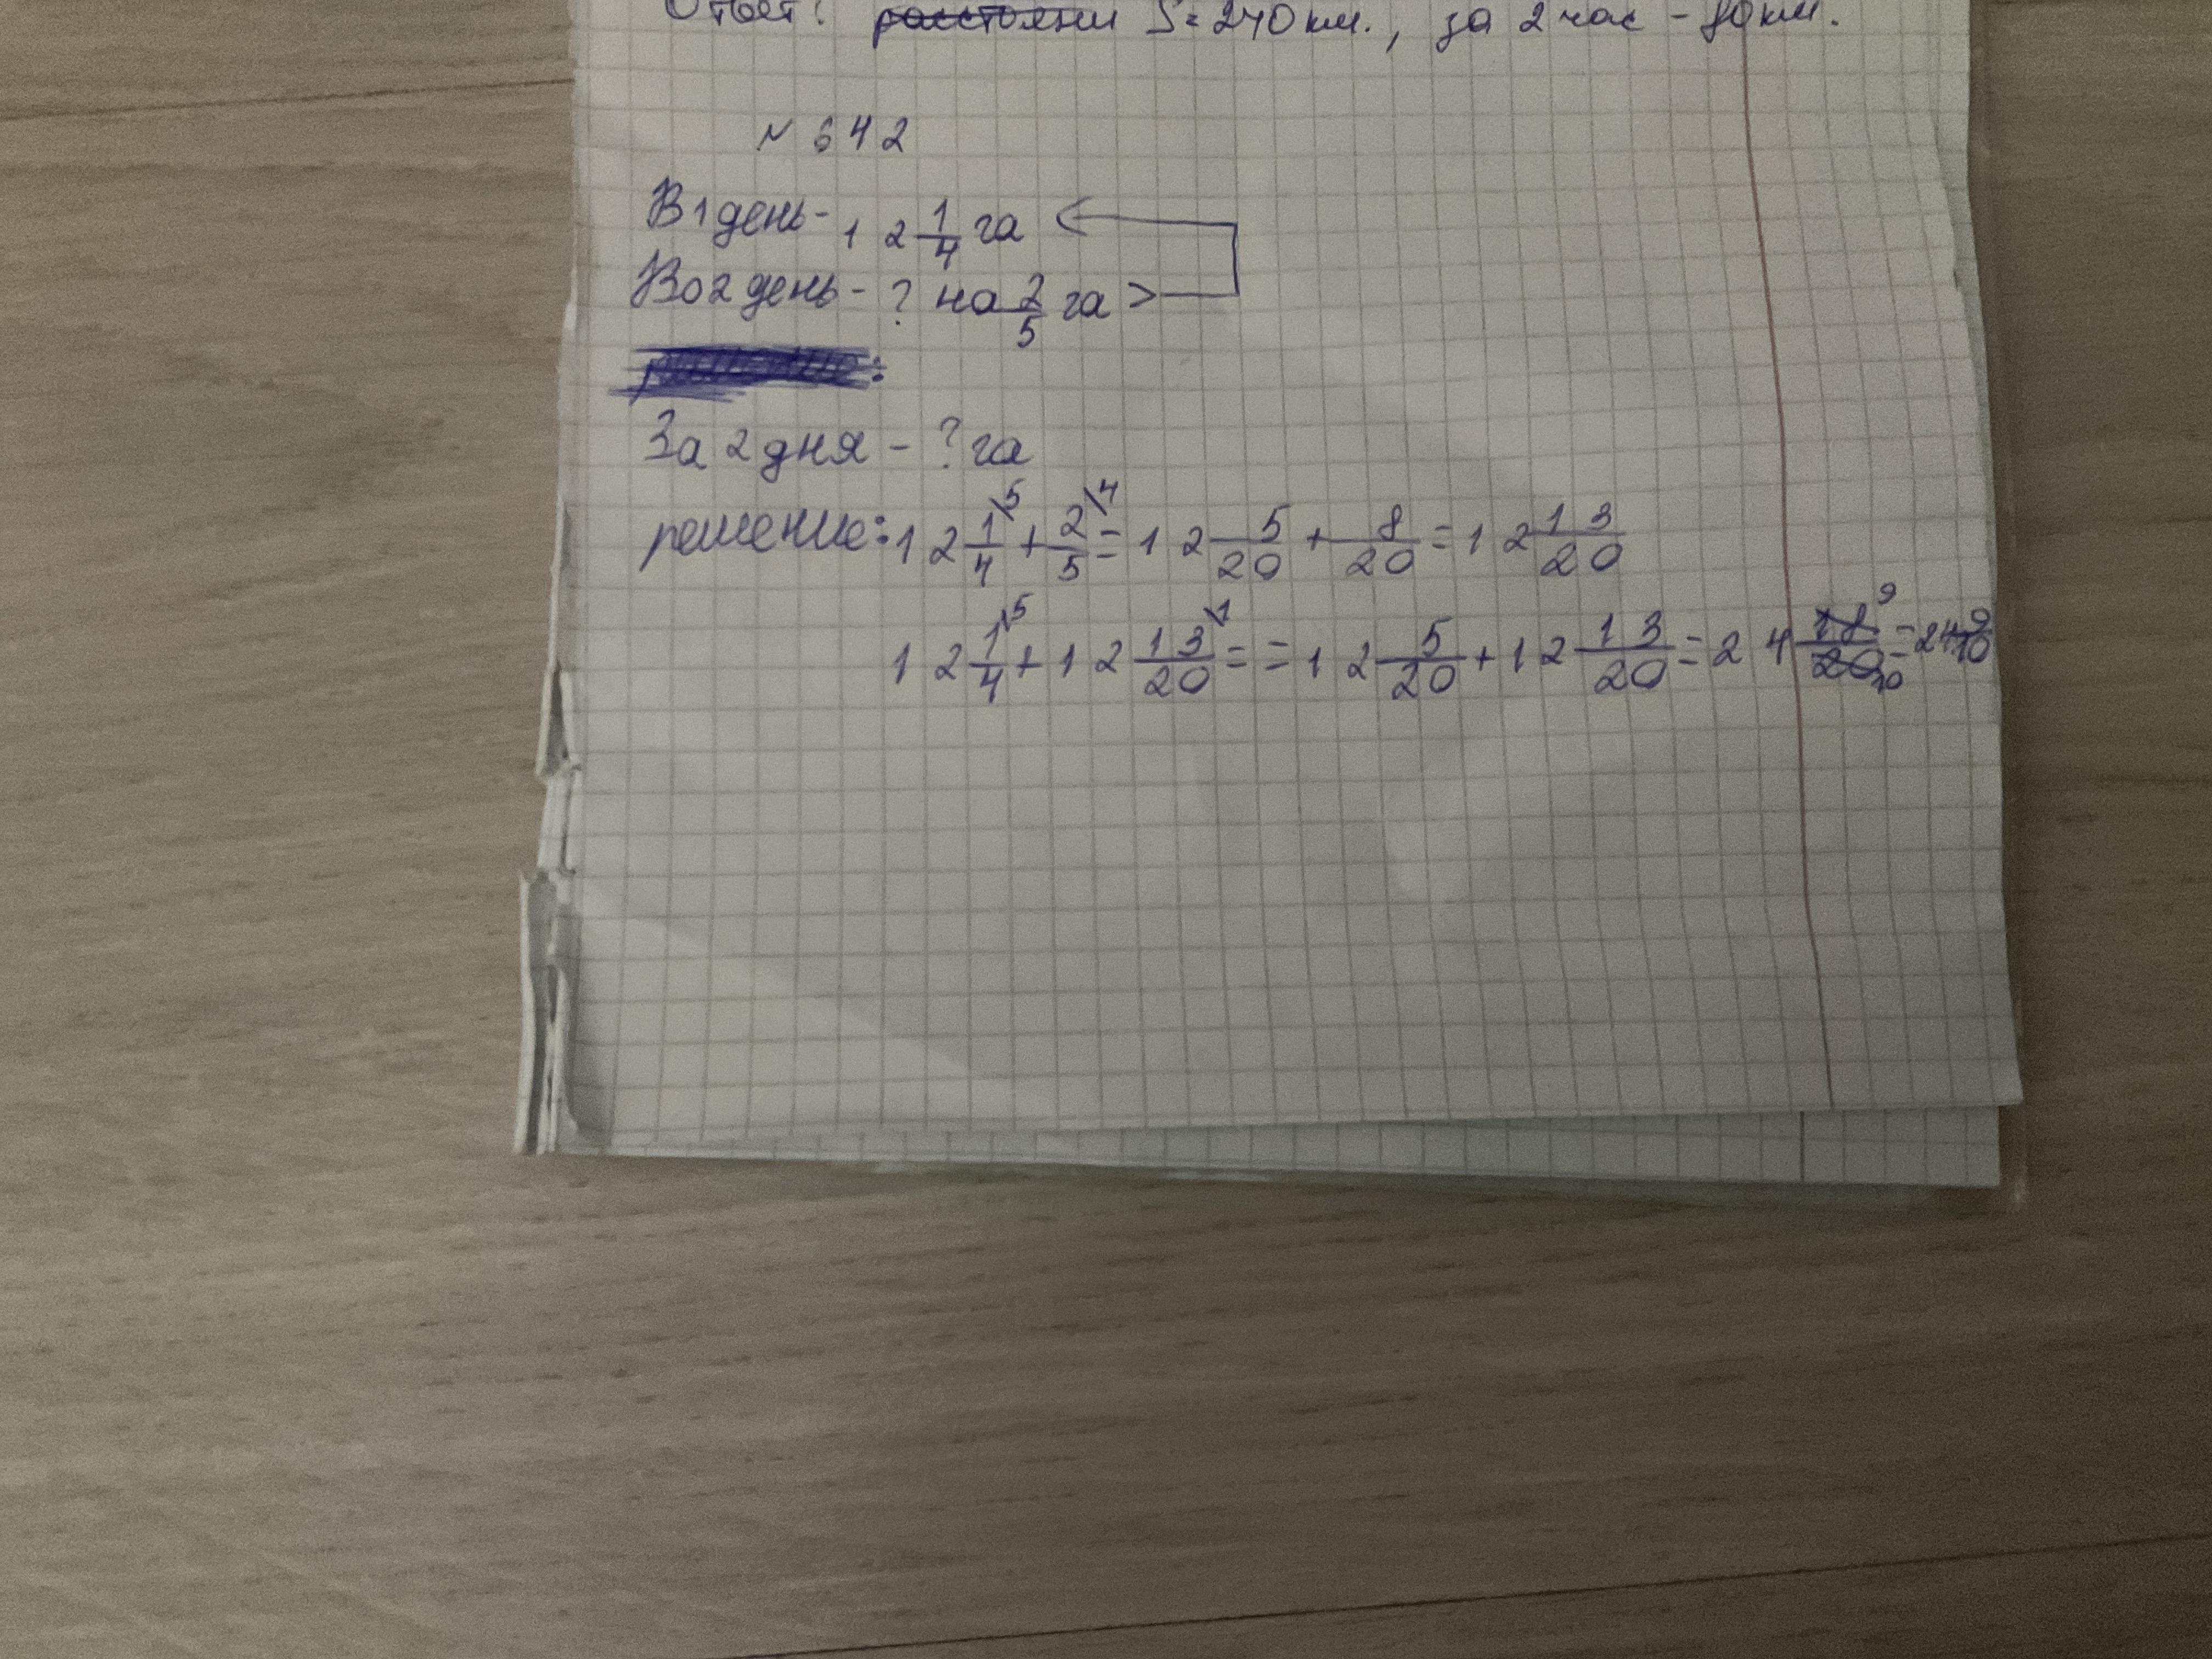 Ответ: расстояни S=240 км., за 2 час - 80 км.
N 642
В 1 день - 12 1/4 га
Во 2 день - ? на 2/5 га >
За 2 дня - ? га
решение: 12 1/4 \5 + 2/5 \4 = 12 5/20 + 8/20 = 12 13/20
12 1/4 \5 + 12 13/20 \1 = = 12 5/20 + 12 13/20 = 24 18/20 9 10 = 24 9/10